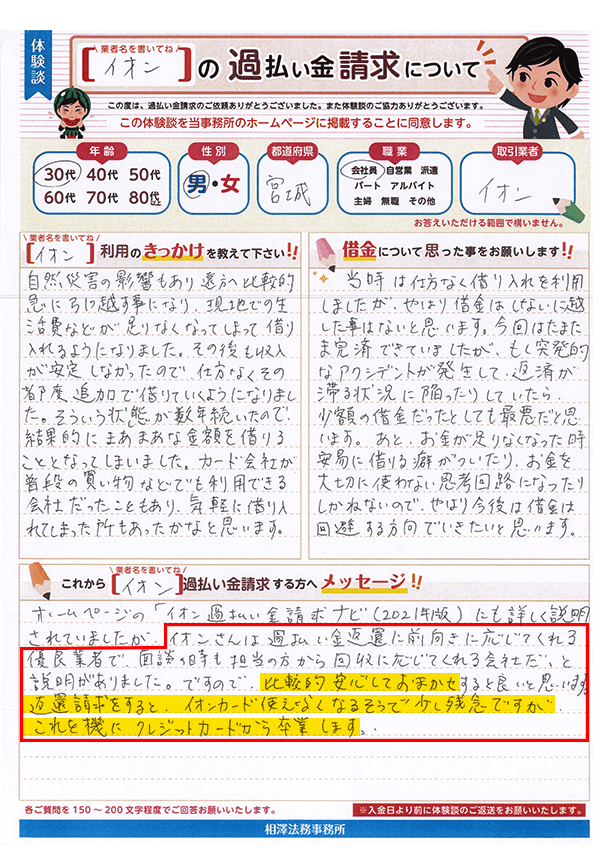 体験談
業者名を書いてね
[イオン]の過払い金請求について
この度は、過払い金請求のご依頼ありがとうございました。また体験談のご協力ありがとうございます。
この体験談を当事務所のホームページに掲載することに同意します。
年齢
30代 40代 50代
60代 70代 80代以上
性別
男・女
都道府県
宮城
職業
会社員 自営業 派遣
パート アルバイト
主婦 無職 その他
取引業者
イオン
お答えいただける範囲で構いません。
業者名を書いてね
[イオン]利用のきっかけを教えて下さい!!
自然災害の影響もあり遠方へ比較的
急に引っ越す事になり、現地での生
活費などが足りなくなってしまって借り
入れるようになりました。その後も収入
が安定しなかったので、仕方なくその
都度追加で借りていくようになりまし
た。そういう状態が数年続いたので、
結果的にまあまあな金額を借りる
こととなってしまいました。カード会社が
普段の買い物などでも利用できる
会社だったこともあり、気軽に借り入
れてしまった所もあったかなと思います。
借金について思った事をお願いします!!
当時は仕方なく借り入れを利用
しましたが、やはり借金はしないに越
した事はないと思います。今回はたまた
ま完済できていましたが、もし突発的
なアクシデントが発生して、返済が
滞る状況に陥ったりしていたら、
少額の借金だったとしても最悪だと思
います。あと、お金が足りなくなった時
安易に借りる癖がついたり、お金を
大切に使わない思考回路になったり
しかねないので、やはり今後は借金は
回避する方向でいきたいと思います。
業者名を書いてね
これから[イオン]過払い金請求する方へメッセージ!!
ホームページの「イオン過払い金請求ナビ(2021年版)にも詳しく説明
されていましたが、イオンさんは過払い金返還に前向きに応じてくれる
優良業者で、面談の時も担当の方から回収に応じてくれる会社だ、と
説明がありました。ですので、比較的安心しておまかせすると良いと思います。
返還請求をすると、イオンカード使えなくなるそうで少し残念ですが、
これを機にクレジットカードから卒業します。
各ご質問を150〜200文字程度でご回答お願いいたします。
※入金日より前に体験談のご返送をお願いいたします。
相澤法務事務所